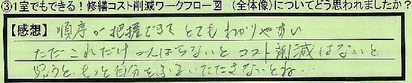 ③1室でもできる!修繕コスト削減ワークフロー図(全体像)についてどう思われましたか?
【感想】順序が把握できて とてもわかりやすい
ただこれだけ やらないと コスト削減はないと
思うと もっと自分をふるいたたさないとね…